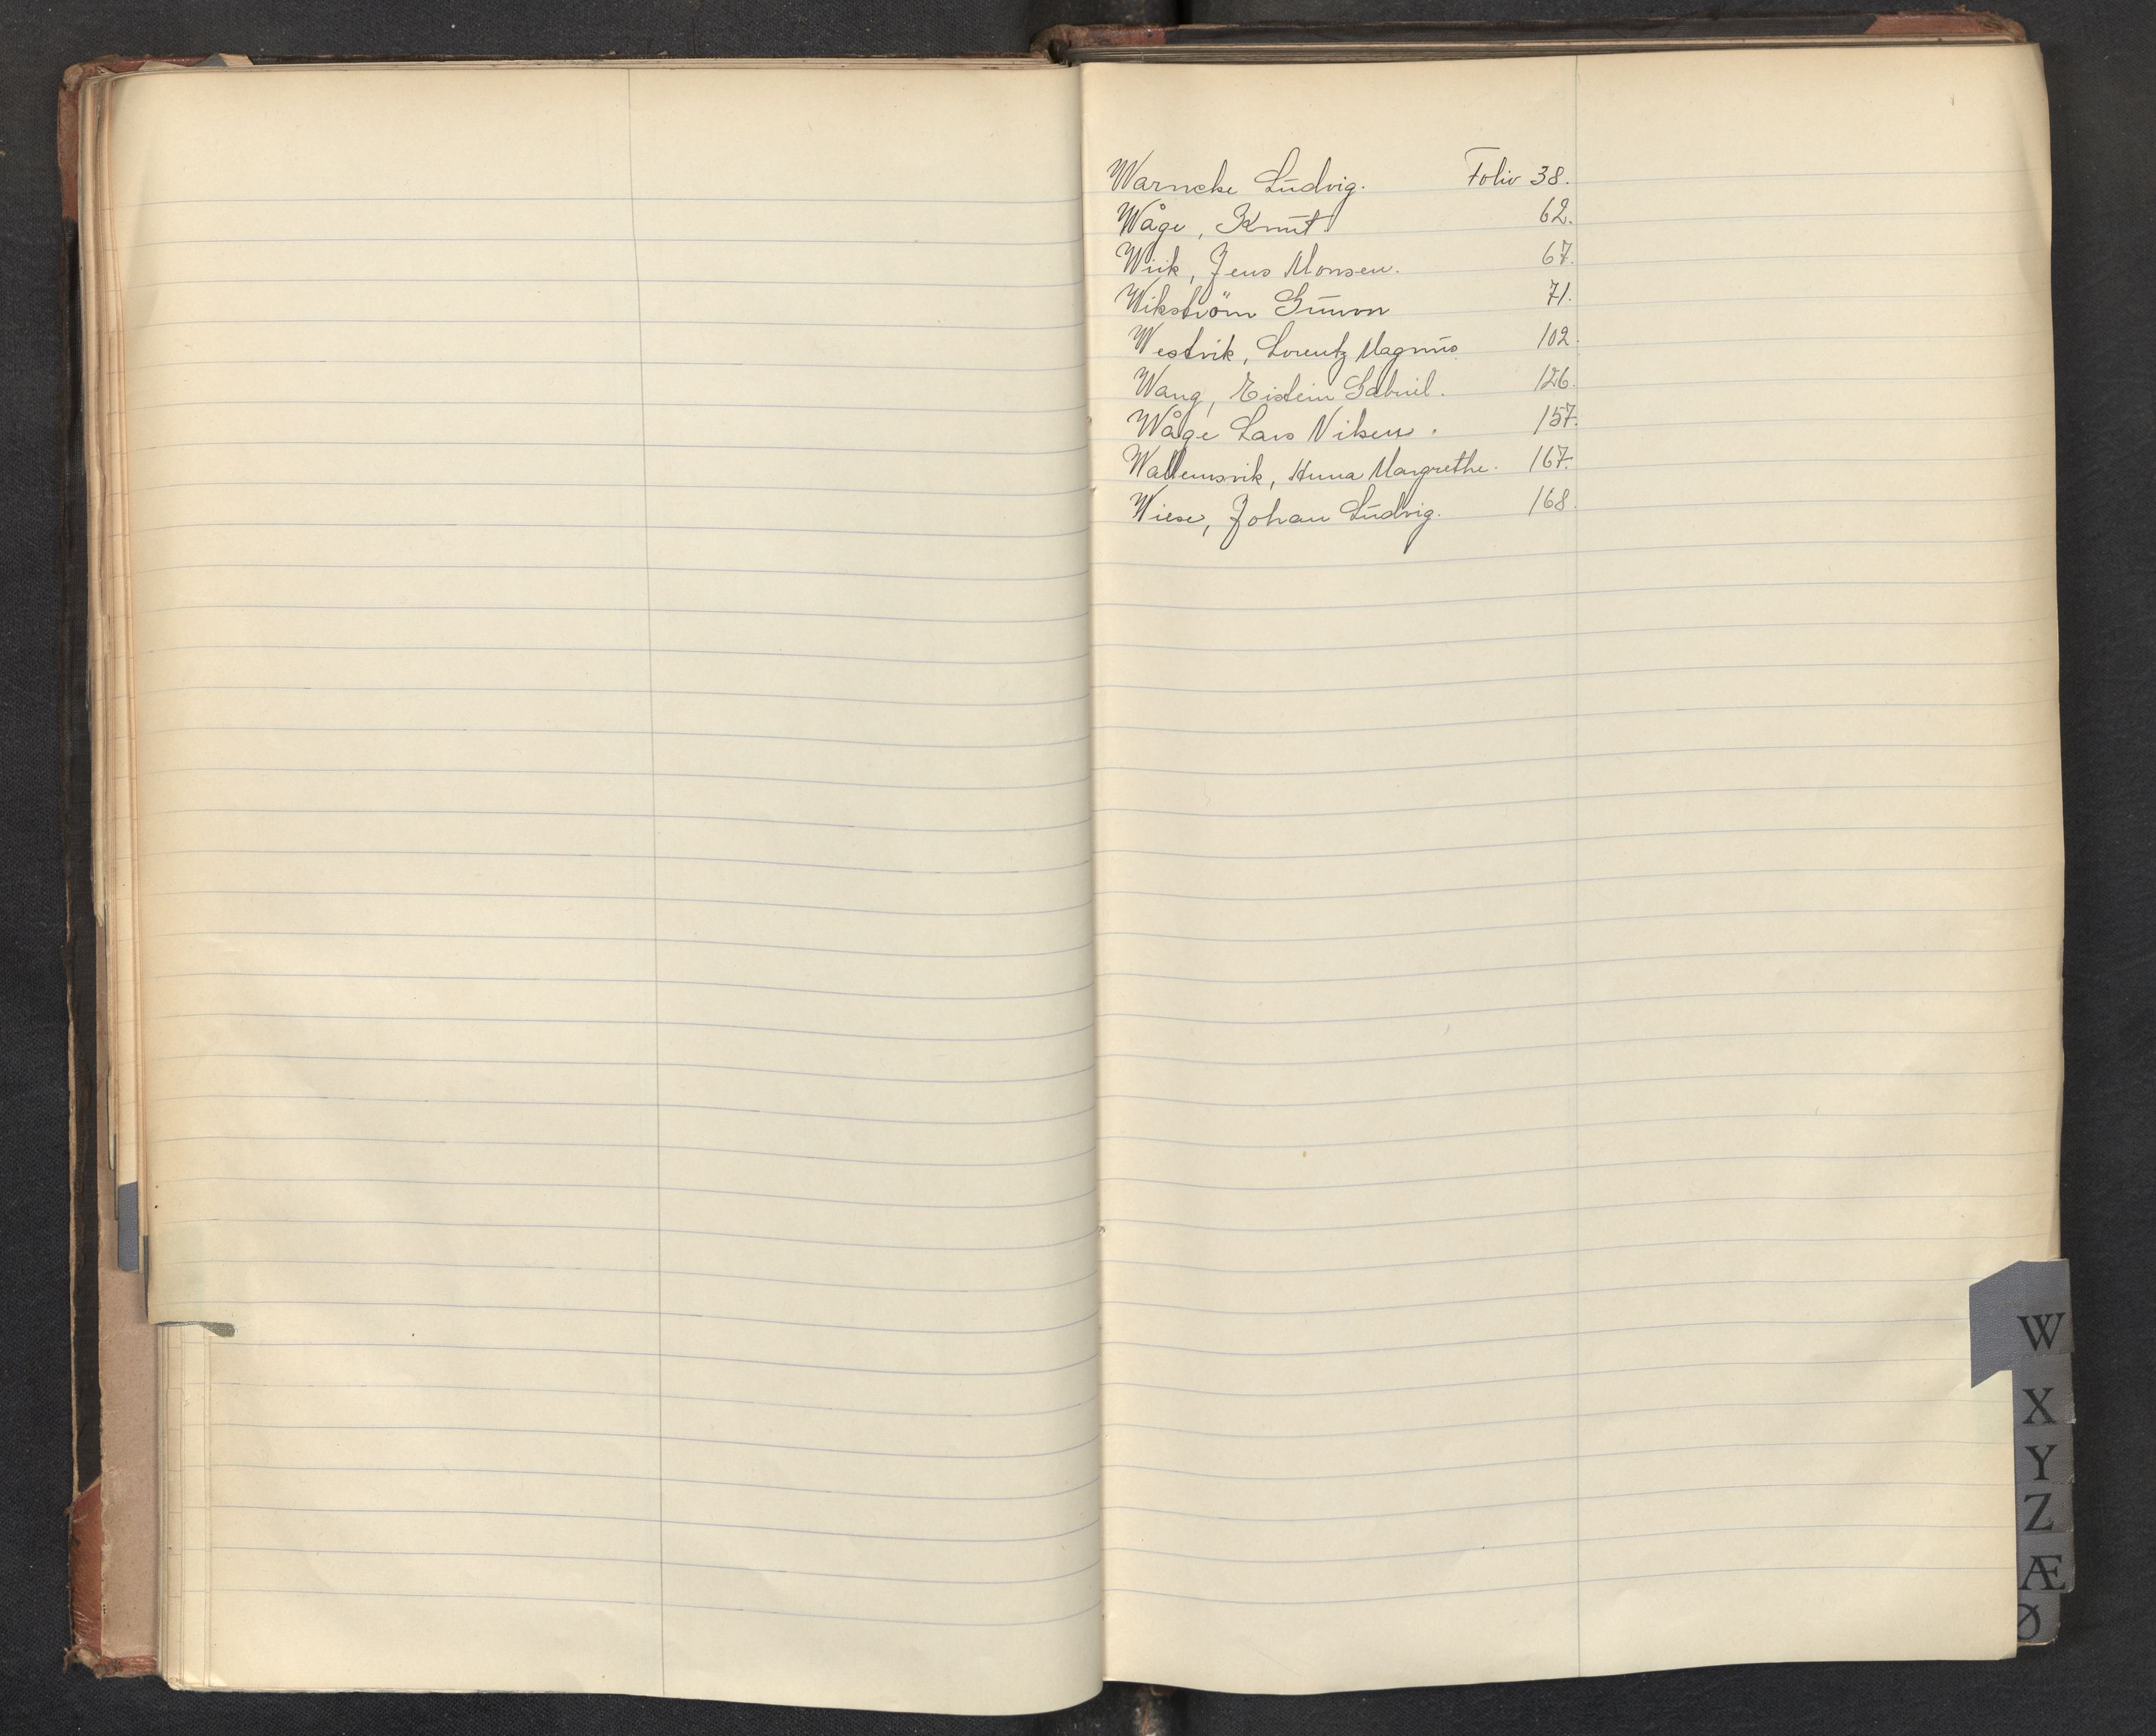 Warncke Ludvig. Folio 38.
Wåge, Knut 62.
Wiik, Jens Monsen. 67.
Wikström Gunvor 71.
Westvik, Lorentz Magnus 102.
Wang, Eistein Gabriel. 126.
Wåge Lars Nilsen. 157.
Wallemsvik, Anna Margrethe. 167.
Wiese, Johan Ludvig. 168.
W
X
Y
Z
Æ
Ø